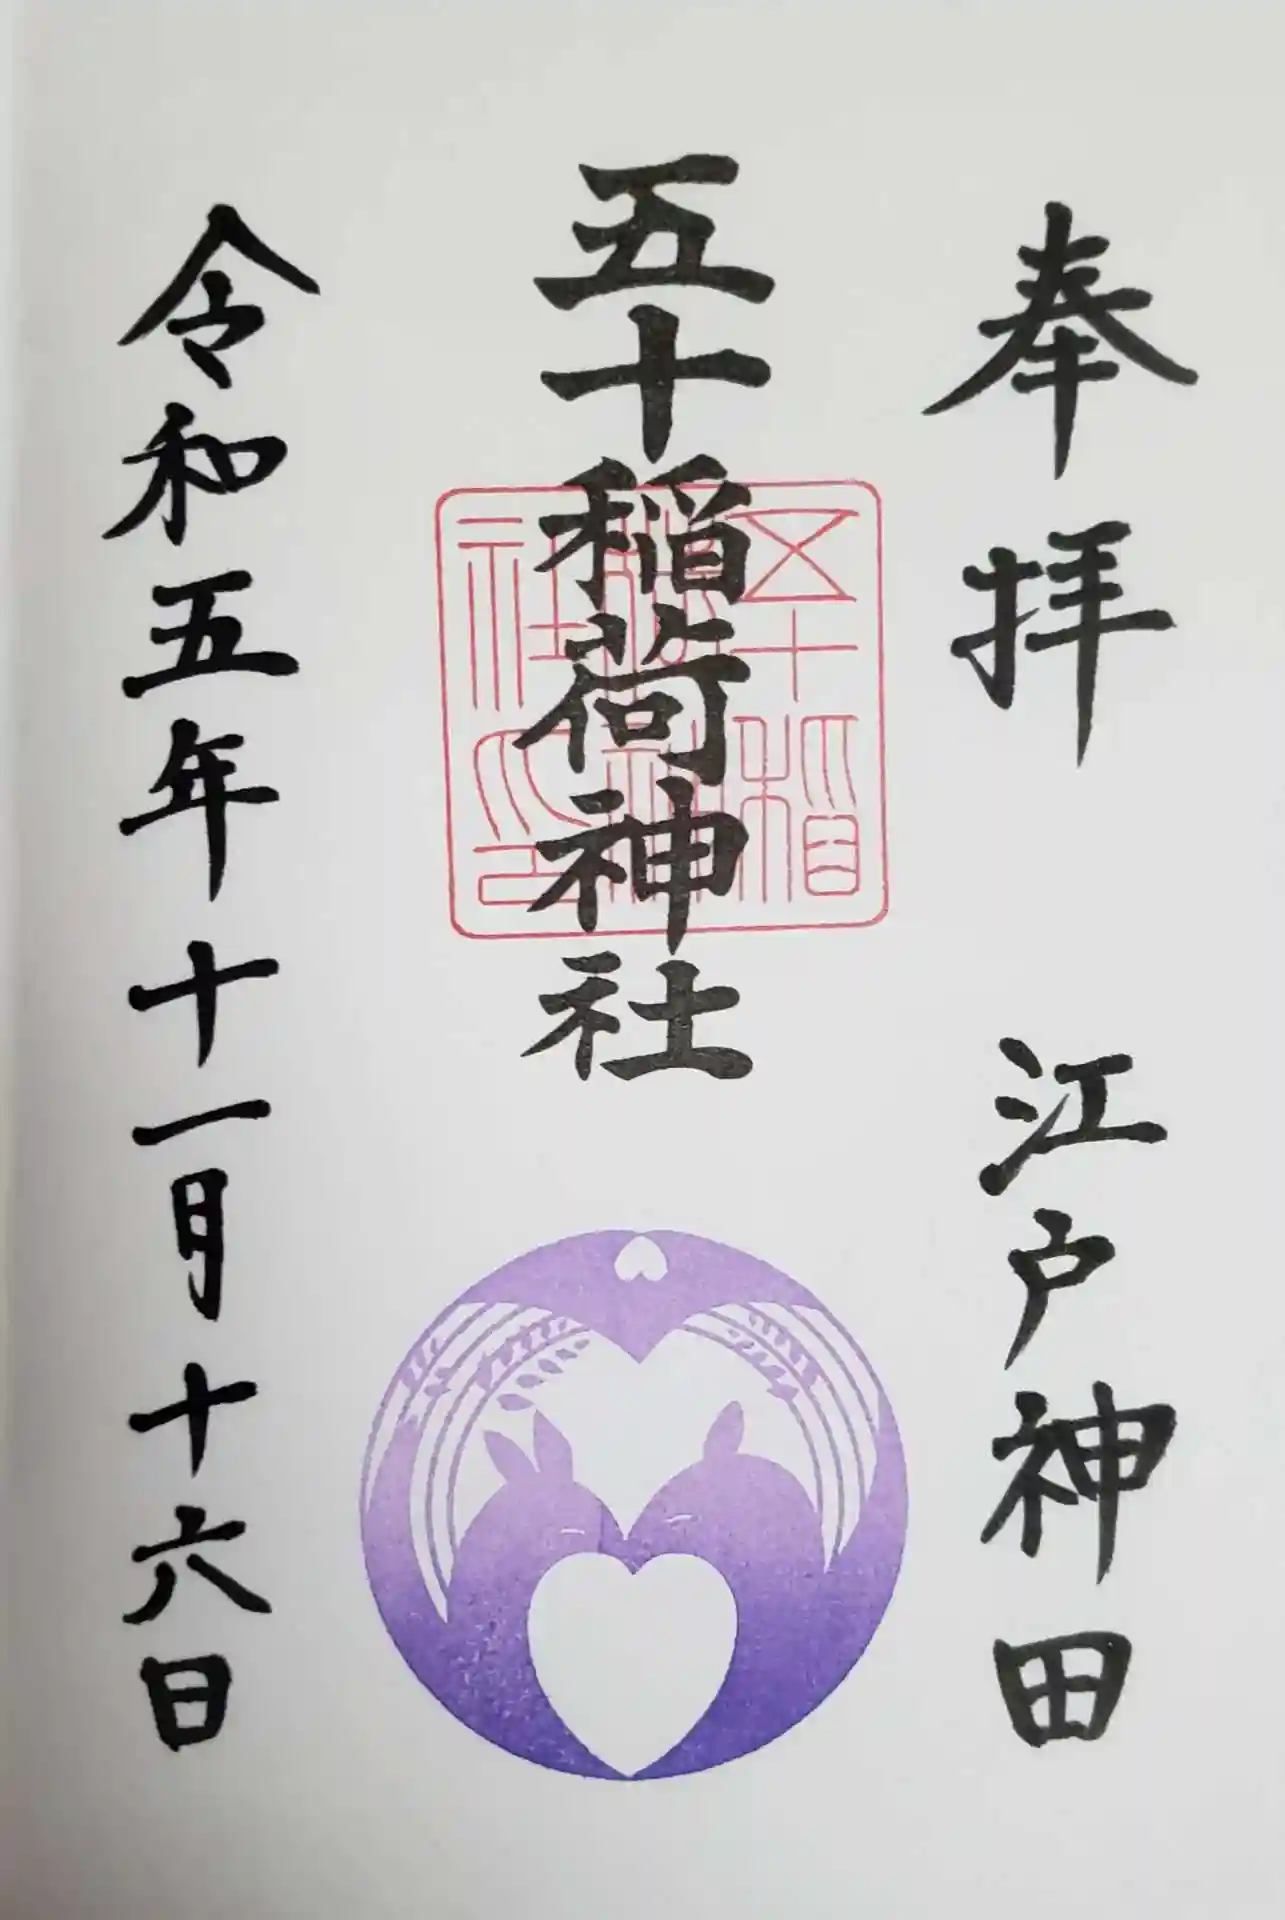 奉拝 江戸神田
五十稲荷神社
五十稲
荷神
社印
令和五年十一月十六日